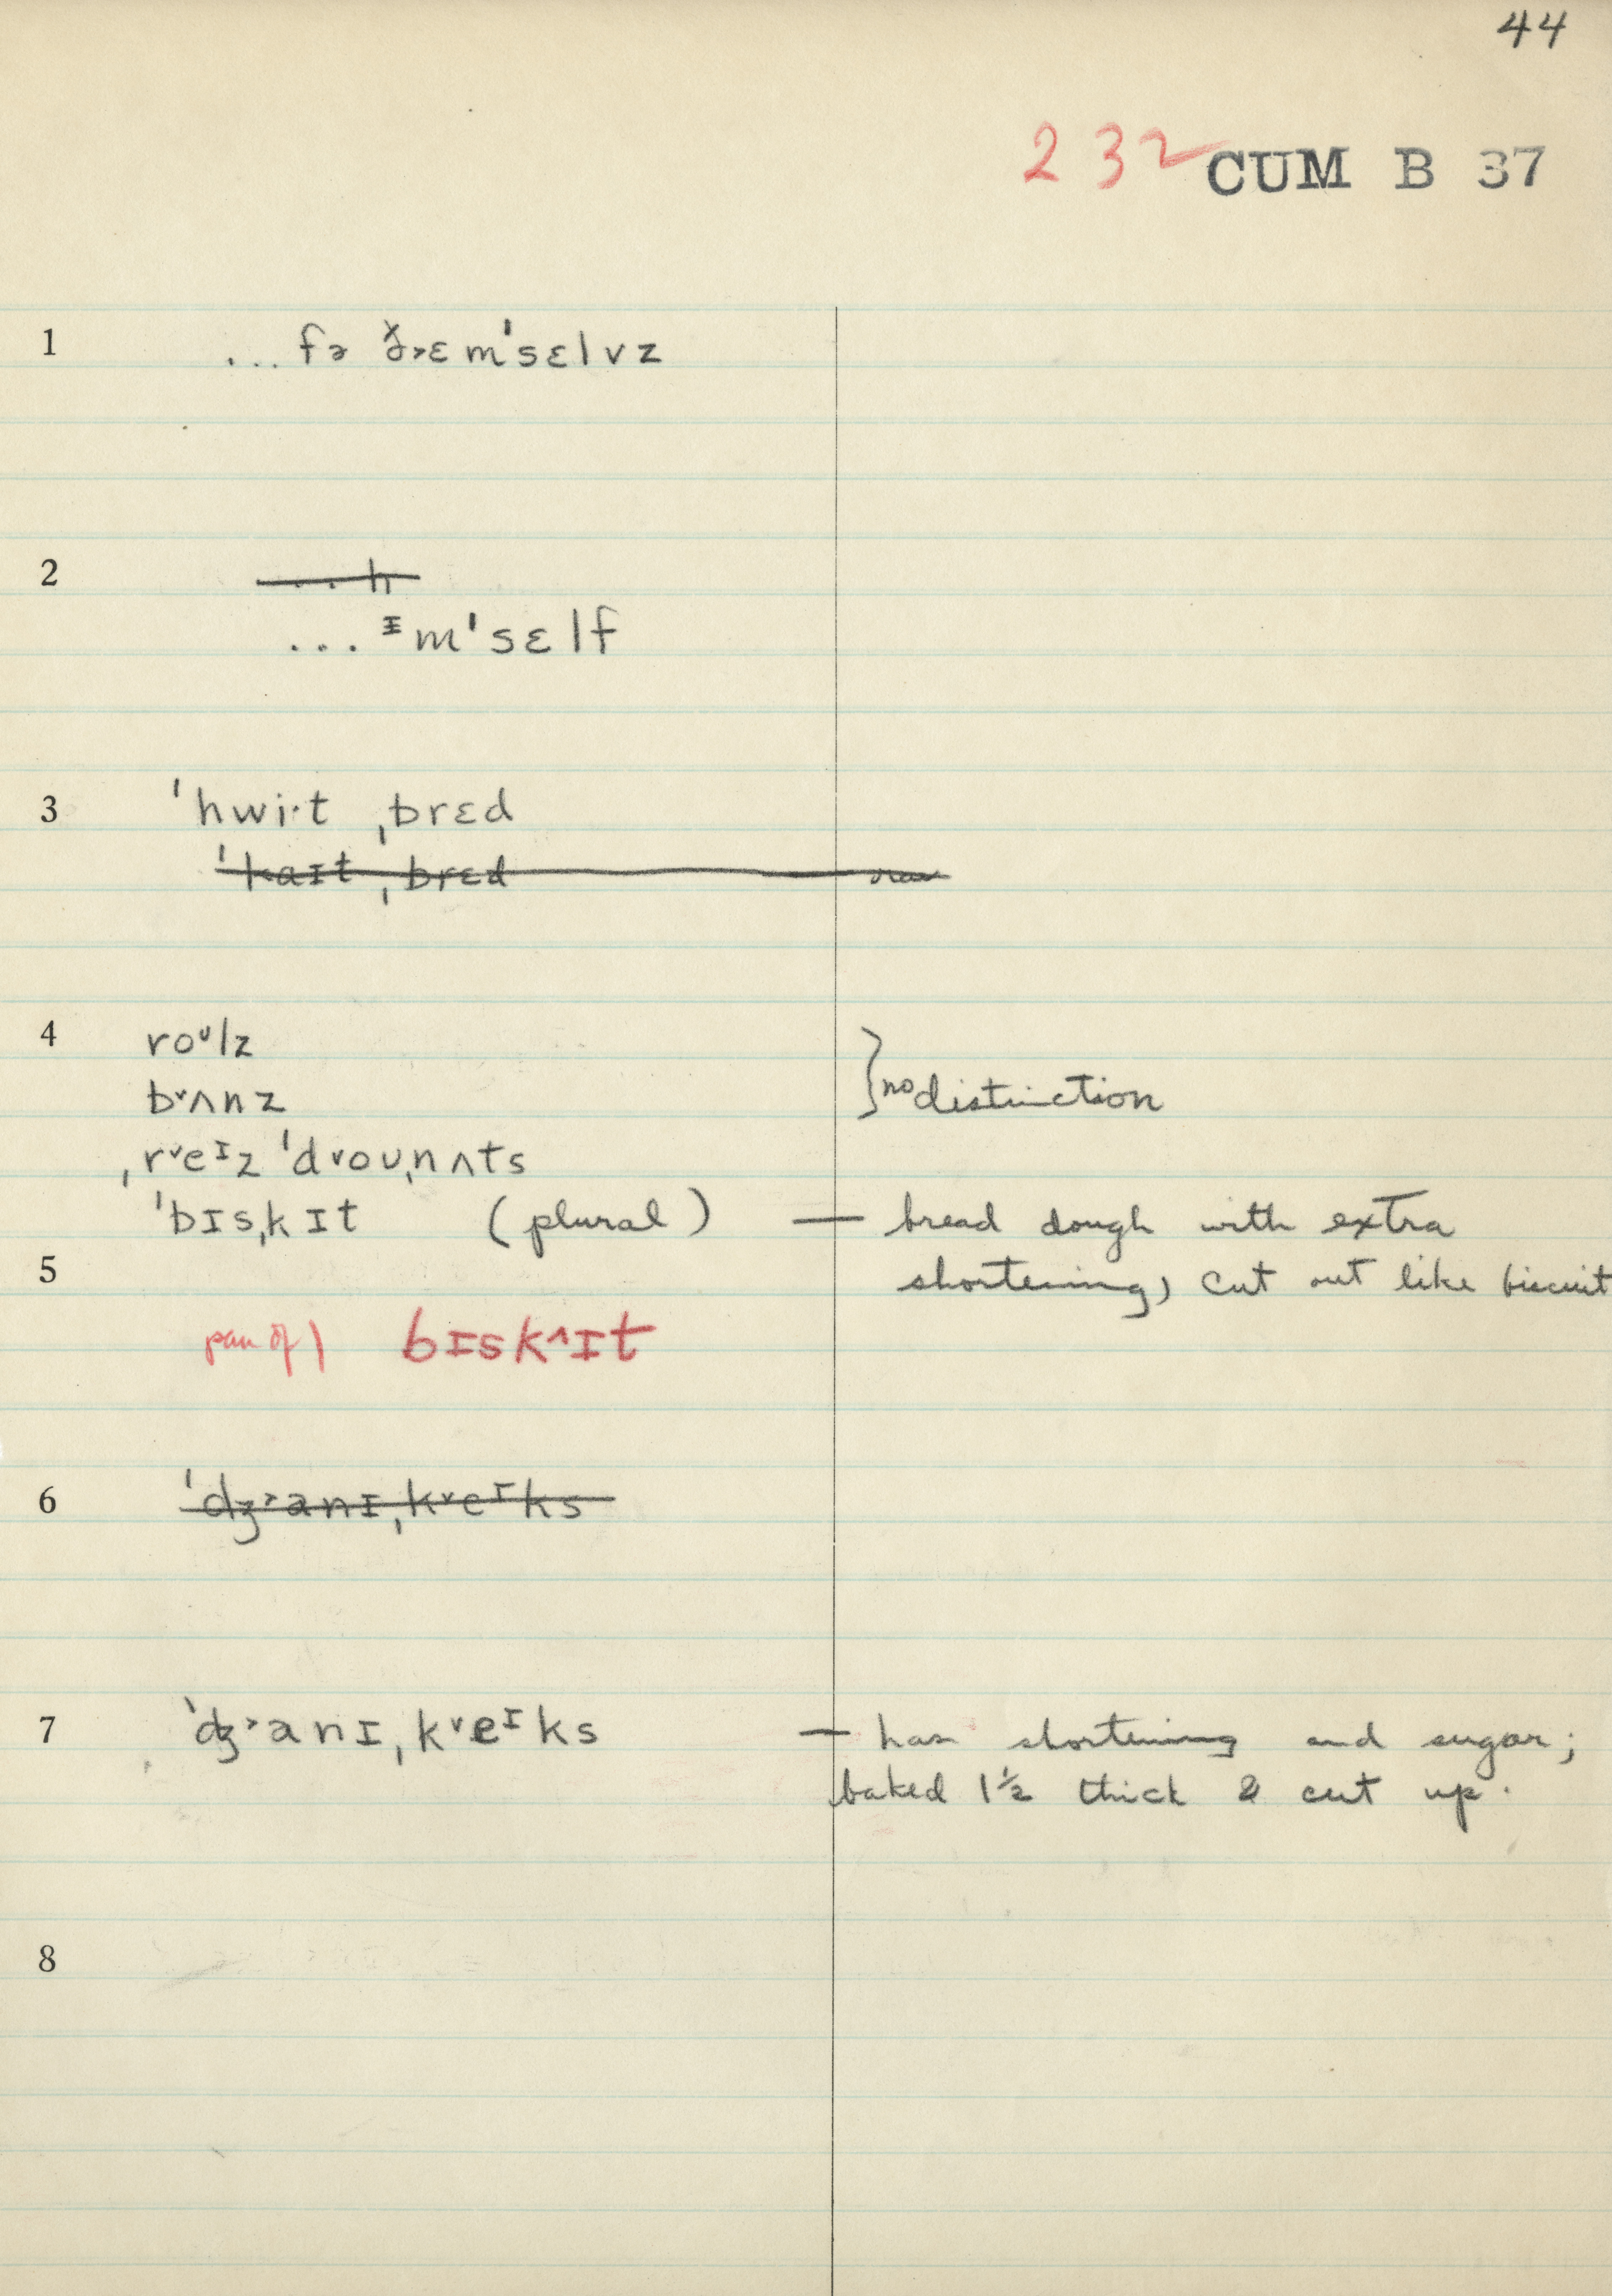 44
232 CUM B 37
1 ... fə ð˃ɛm'sɛlvz
2 ... h
... ᵻm'sɛlf
3 'hwi·t ˌbrɛd
'kaɪt ˌbrɛd
4 roᶷlz
b˅ʌnz } no distinction
ˌr˅eᶦz 'd˅oʊˌnʌts
'bɪsˌkɪt (plural) — bread dough with extra
5 shortening, cut out like biscuit
pan of) bɪsk^ɪt
6 'dʒ˃anɪˌk˅eᶦks
7 'dʒ˃anɪˌk˅eᶦks — has shortening and sugar;
baked 1½ thick & cut up.
8